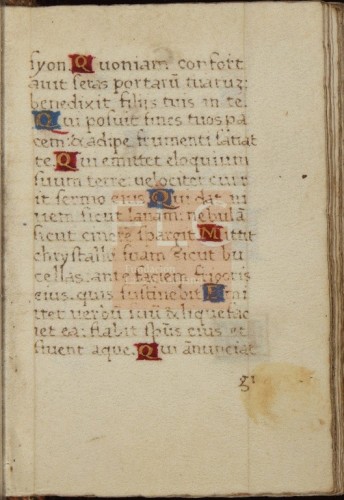 syon. Quoniam confort
auit seras portarū tuaruz:
benedixit filijs tuis in te.
Qui posuit fines tuos pa
cem: & adipe frumenti satiat
te. Qui emittet eloquium
suum terre: velociter curr
it sermo eius. Qui dat ni
uem sicut lanam: nebulā
sicut cinerē spargit. Mittit
chrystallū suam sicut bu
cellas: ante faciem frigoris
eius. quis sustinebit. Emi
ttet verbū suū & liquefac
iet ea: flabit sp̄us eius et
fluent aque. Qui ānunciat